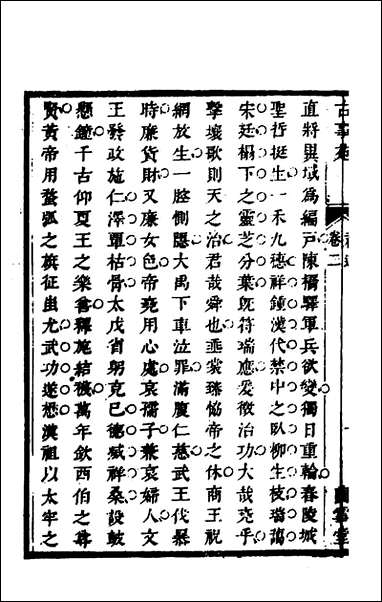 古事苑
卷二
直將異域為編戸陳橋驛軍兵欲變獨日重輪舂陵城
聖哲挺生一禾九穗祥鍾漢代禁中之臥柳生枝瑞藹
宋廷榻下之靈芝分葉旣符瑞應爰徵治功大哉堯乎
擊壤歌則天之治君哉舜也垂裳臻恊帝之休商王祝
網放生一腔惻隱大禹下車泣罪滿腹仁慈武王伐暴
時廉貨財又廉女色帝堯用心處哀孺子兼哀婦人文
王發政施仁澤覃枯骨太戊省躬克已德祥桑設鼓
懸鐘千古仰夏王之樂善釋旒結襪萬年欽西伯之尊
賢黃帝用蝥弧之旗征蚩尤武功遂懋漢祖以太牢之
堂